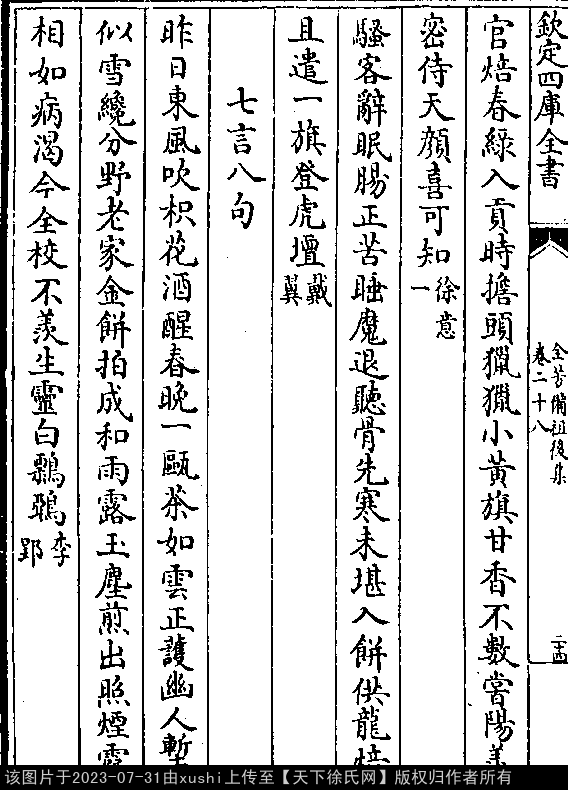 欽定四庫全書
全芳備祖後集
卷二十八
二十四
官焙春綠入貢時擔頭獵獵小黃旗甘香不數嘗陽羨
密侍天顔喜可知徐意一
騷客辭眠腸正苦睡魔退聽骨先寒未堪入餅供龍焙
且遣一旗登虎壇戴翼
七言八句
昨日東風吹枳花酒醒春晚一甌茶如雲正護幽人塹
似雪纔分野老家金餅拍成和雨露玉塵煎出照煙霞
相如病渴今全校不羨生靈白鵶李郢
该图片于2023-07-31由xushi上传至【天下徐氏网】版权归作者所有